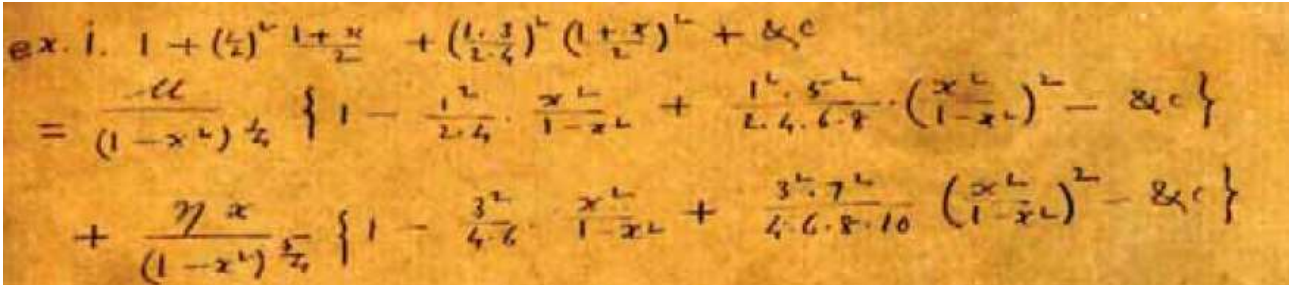 ex. i. 1 + (1/2)² (1+x)/2 + ((1·3)/(2·4))² ((1+x)/2)² + &c
= μ/(1−x²)^(1/4) { 1 − 1²/(2·4) · x²/(1−x²) + (1²·5²)/(2·4·6·8) · (x²/(1−x²))² − &c }
+ ηx/(1−x²)^(3/4) { 1 − 3²/(4·6) · x²/(1−x²) + (3²·7²)/(4·6·8·10) (x²/(1−x²))² − &c }